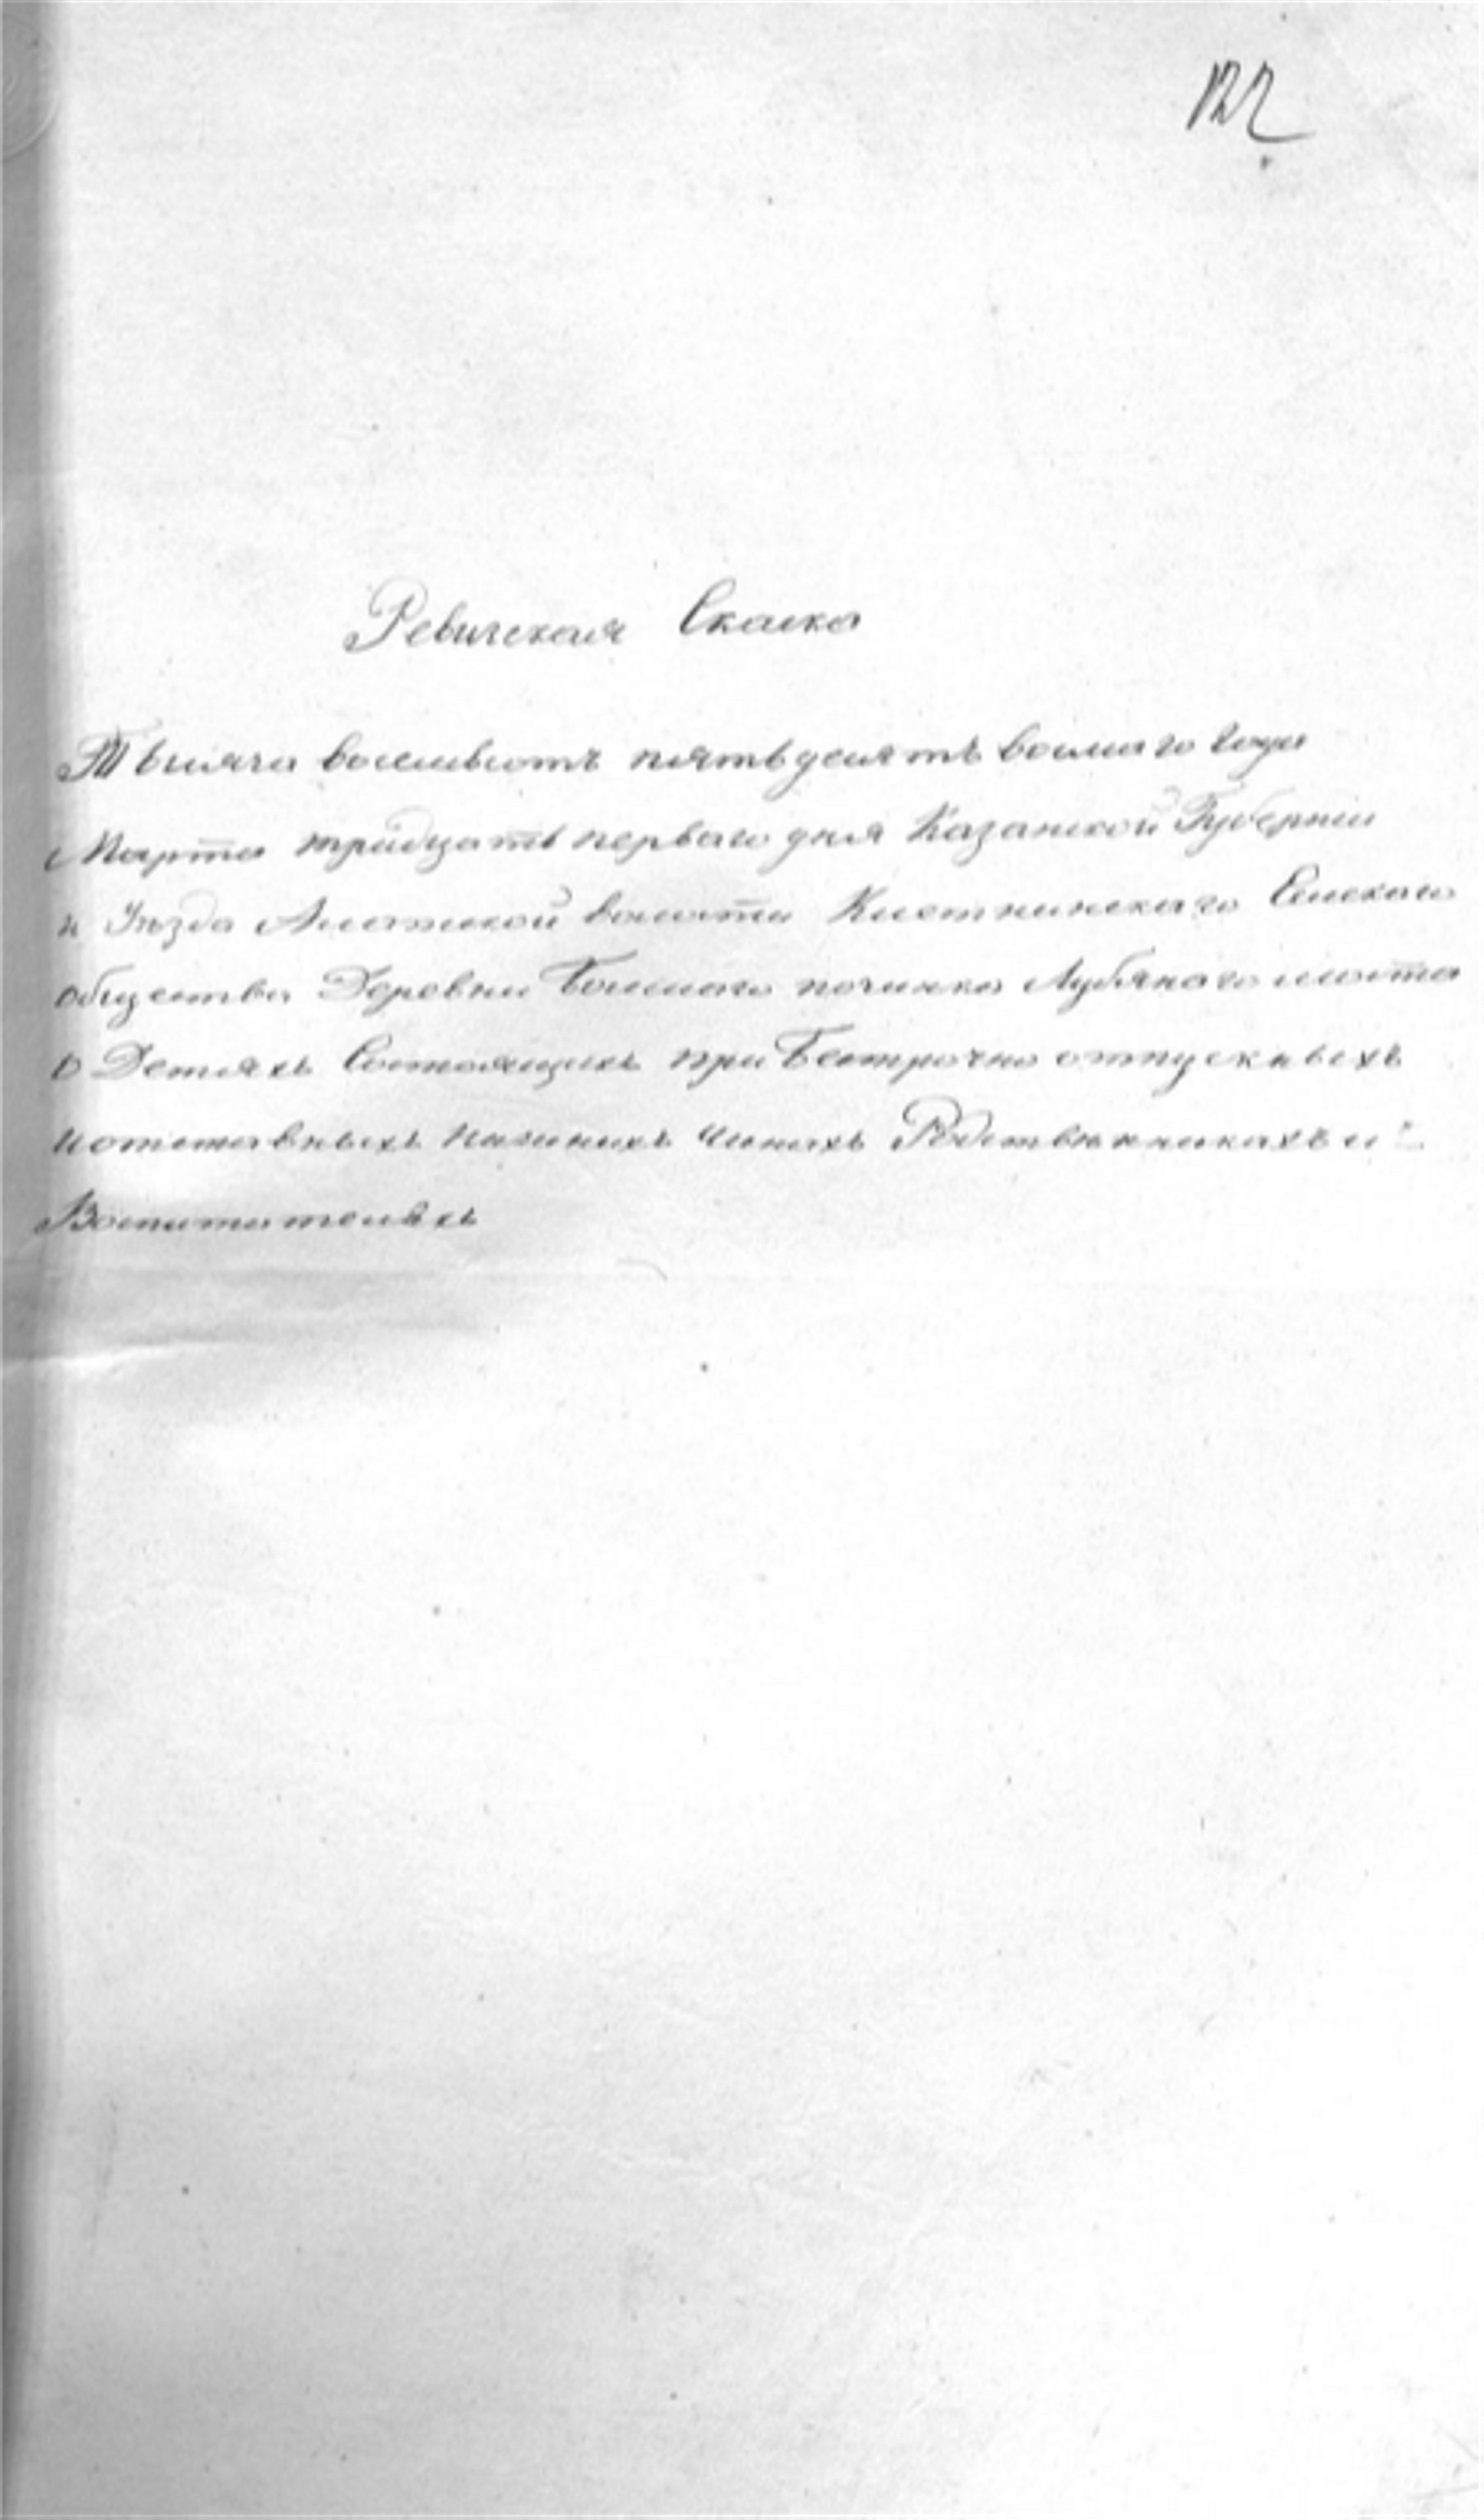 122
Ревизская Скаска
Тысяча восемьсотъ пятьдесятъ восмаго года
Марта тридцать перваго дня Казанской Губернiи
и Уѣзда Алатской волости Сельскаго
общества Деревни починка
О Детяхъ Состоящихъ при Безсрочно отпускныхъ
иотставныхъ нижнихъ чинахъ Родственникахъ и
Воспитателяхъ